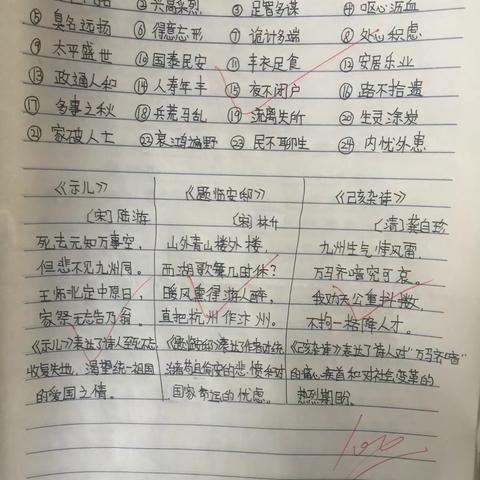 ② 兴高采烈 ③ 足智多谋 ④ 呕心沥血
⑤ 臭名远扬 ⑥ 得意忘形 ⑦ 诡计多端 ⑧ 处心积虑
⑨ 太平盛世 ⑩ 国泰民安 ⑪ 丰衣足食 ⑫ 安居乐业
⑬ 政通人和 ⑭ 人寿年丰 ⑮ 夜不闭户 ⑯ 路不拾遗
⑰ 多事之秋 ⑱ 兵荒马乱 ⑲ 流离失所 ⑳ 生灵涂炭
㉑ 家破人亡 ㉒ 哀鸿遍野 ㉓ 民不聊生 ㉔ 内忧外患
《示儿》 《题临安邸》 《己亥杂诗》
〔宋〕陆游 〔宋〕林升 〔清〕龚自珍
死去元知万事空， 山外青山楼外楼， 九州生气恃风雷，
但悲不见九州同。 西湖歌舞几时休？ 万马齐喑究可哀。
王师北定中原日， 暖风熏得游人醉， 我劝天公重抖擞，
家祭无忘告乃翁。 直把杭州作汴州。 不拘一格降人才。
《示儿》表达了诗人至死不忘 《题临安邸》表达作者对统 《己亥杂诗》表达了诗人对"万马齐喑"
收复失地，渴望统一祖国 治者苟且偷安的悲愤和对 的痛心疾首和对社会变革的
的爱国之情。 国家命运的忧虑。 热烈期盼。